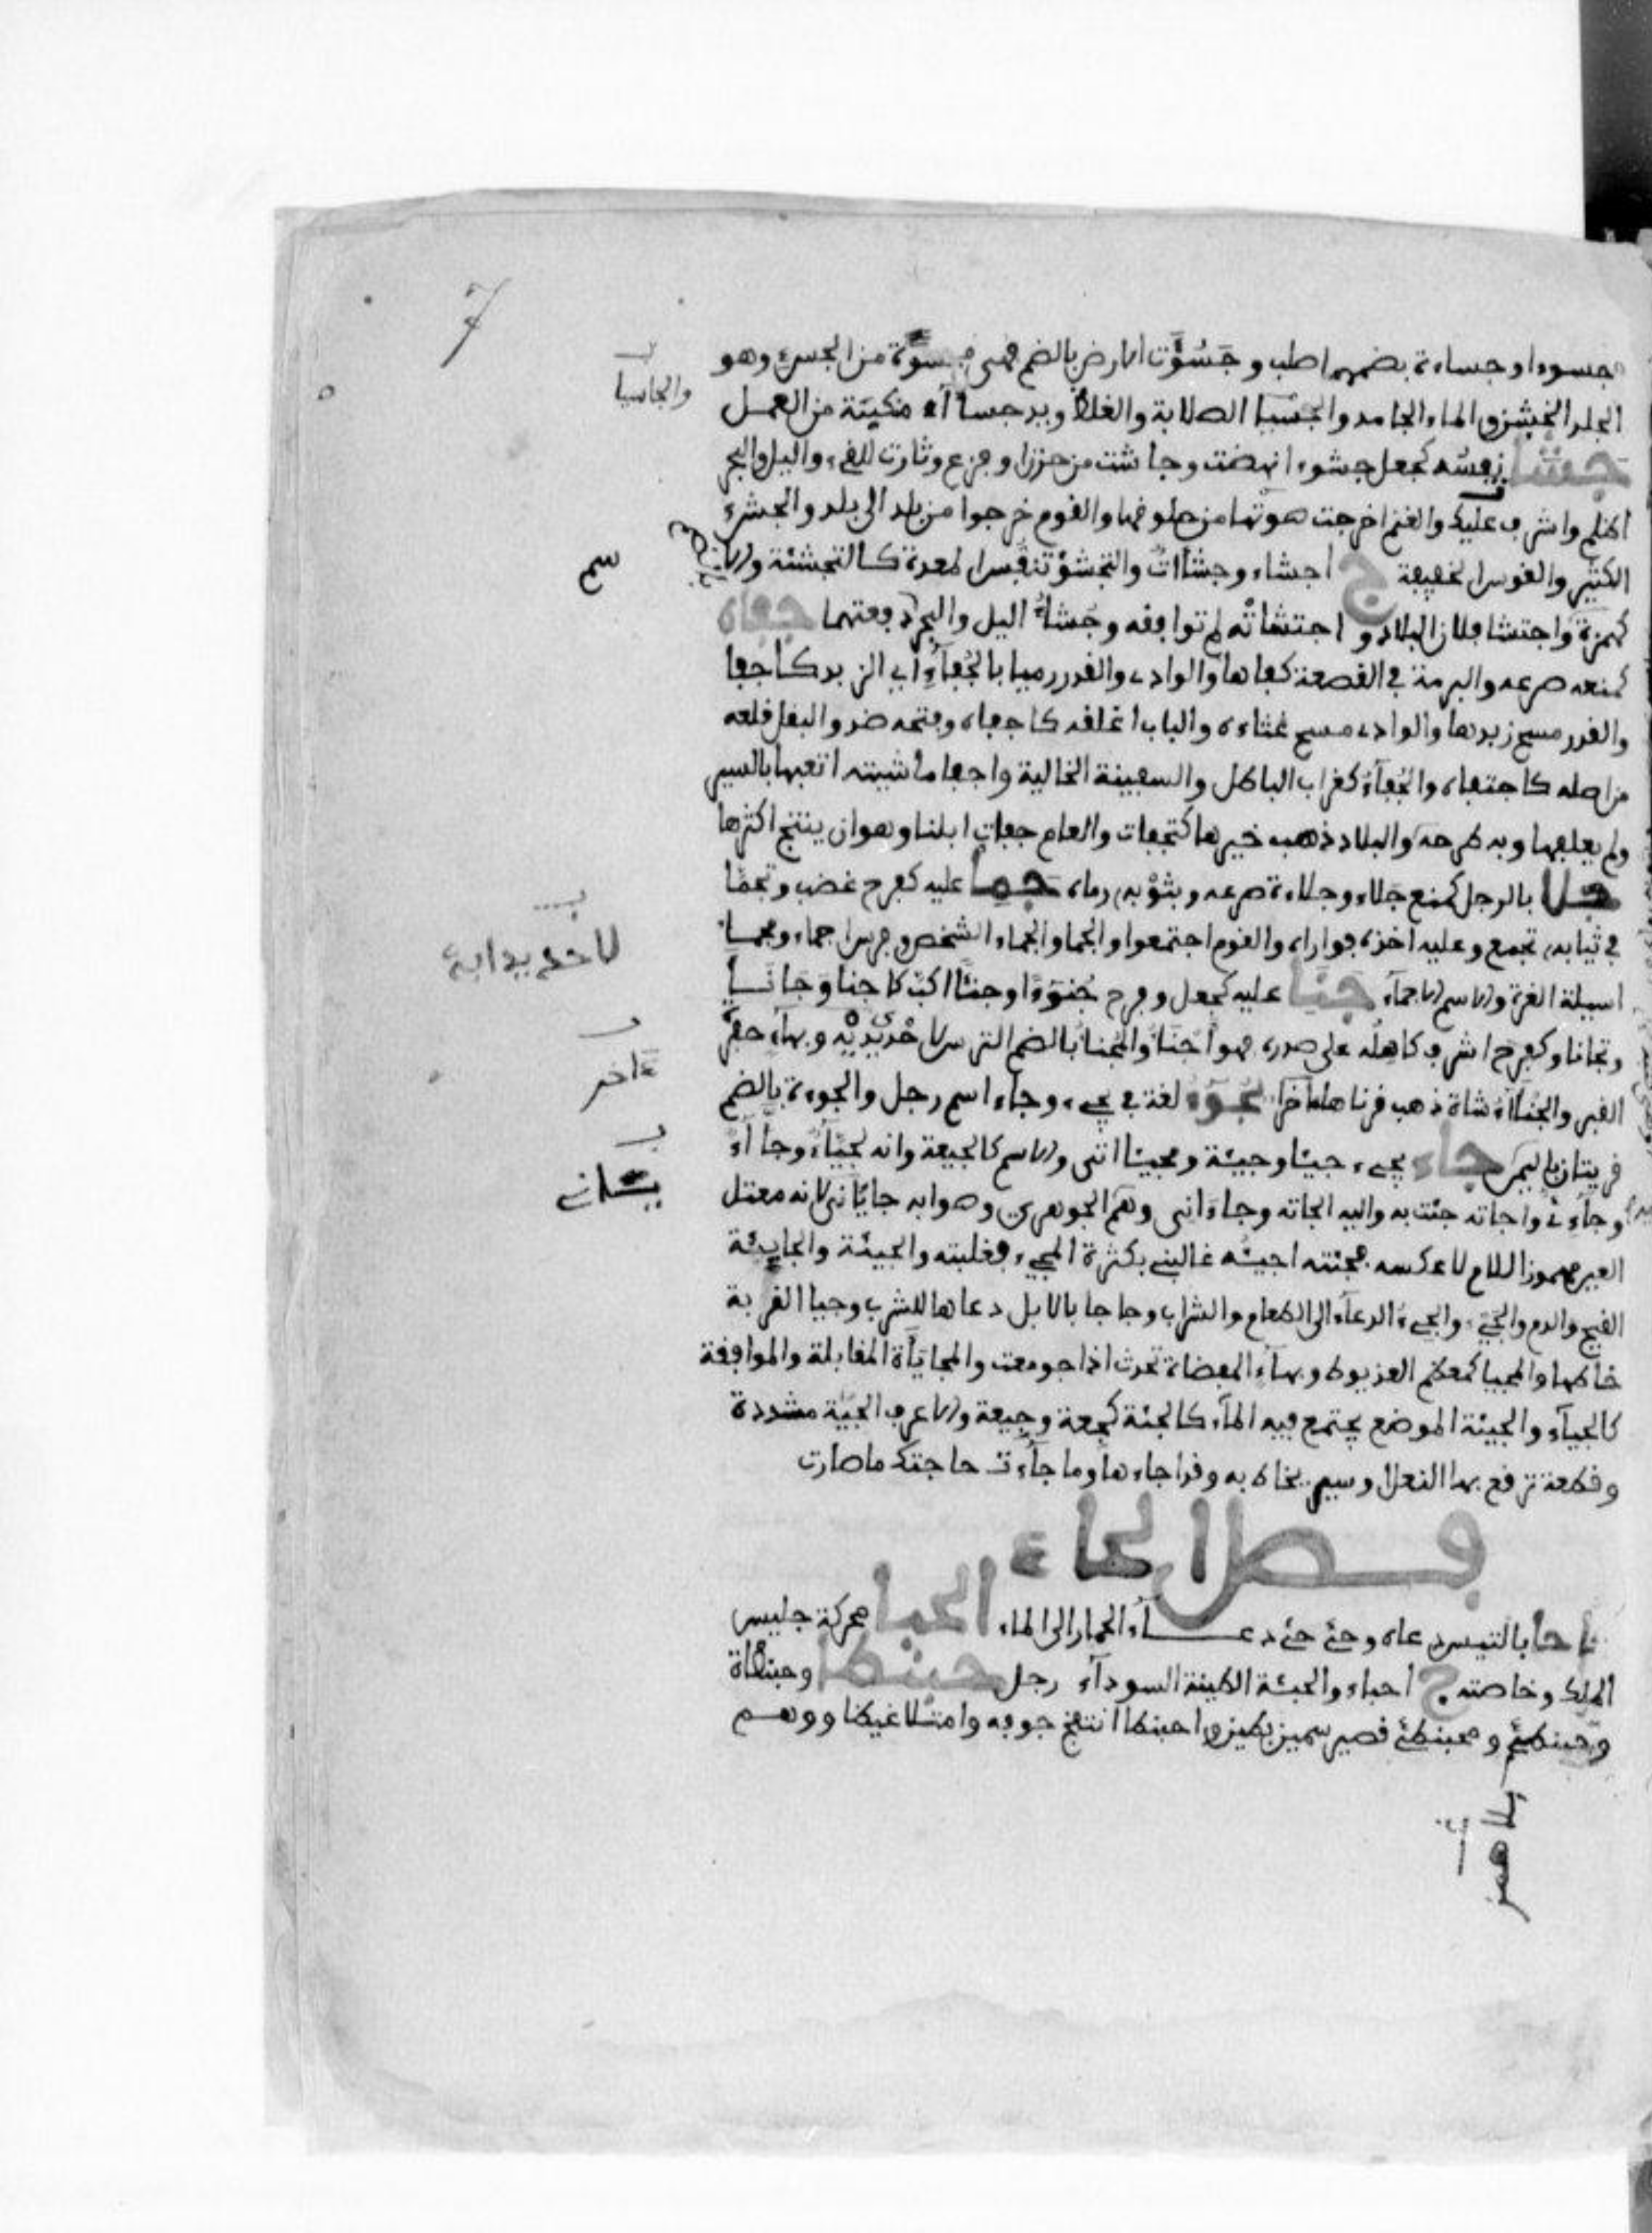 7
جسوءا وجساءة بضمهما صلب وجسؤت الارض بالضم فهى مجسوءة من الجسء وهو
الجلد الخشن والماء الجامد والجسيا الصلابة والغلظ ويد جساآء مكنبة من العمل
جشأ نفسه كجعل جشوءا نهضت وجاشت من حزن او فزع وثارت للقىء والليل والبحر
اظلم واشرف عليك والغنم اخرجت صوتا من حلوقها والقوم خرجوا من بلد الى بلد والجشء
الكثير والقوس الخفيفة ج اجشاء وجشاات والتجشؤ تنفس المعدة كالتجشئة والاسم
كهمزة واجتشا فلان البلاد واجتشاته لم توافقه وجشاء اليل والبحر دفعتهما جفاه
كمنعه صرعه والبرمة في القصعة كفاها والوادى والقدر رميا بالجفاء اي الزبد كاجفا
والقدر مسح زبدها والوادى مسح غثاءه والباب اغلقه كاجفاه وفتحه ضد والبقل قلعه
من اصله كاجتفاه والجفاء كغراب الباطل والسفينة الخالية واجفا ماشيته اتعبها بالسير
ولم يعلفها وبه طرحه والبلاد ذهب خيرها كتجفات والعام جفاة ابلنا وهو ان ينتج اكثرها
جلا بالرجل كمنع جلاء وجلاءة صرعه وبثوبه رماه جما عليه كفرح غضب وتجما
في ثيابه تجمع وعليه اخذه فواراه والقوم اجتمعوا والجما والجماء الشخص وفرس اجماء ومجما
اسيلة الغرة والاسم الاجماء جنا عليه كجعل وفرح جنوءا وجنئا اكب كاجنا وجانا
وتجانا وكفرح اشرف كاهله على صدره فهو اجنا والمجنا بالضم الترس لا حديد به وبهاء حفرة
القبر والجناآء شاة ذهب قرناها اخرا يجوء لغة في يجىء وجاء اسم رجل والجوءة بالضم
قريتان باليمن جاء يجىء جيئا وجيئة ومجيئا اتى والاسم كالجيعة وانه لجياء وجاآء
وجاءئ واجاته جئت به واليه الجاته وجاءانى وهم الجوهرى وصوابه جايانى لانه معتل
العين مهموز اللام لا عكسه فجئته اجيئه غالبنى بكثرة المجىء فغلبته والجيئة والجايئة
القيح والدم والجىء والجىء الدعاء الى الطعام والشراب وجاجا بالابل دعاها للشرب وجيا القربة
خاطها والمجيا كمعظم العذيوط وبهاء المفضاة تحدث اذا جومعت والمجاياة المقابلة والموافقة
كالجياء والجيئة الموضع يجتمع فيه الماء كالجئة كجعة وجيعة والاعرف الجية مشددة
وقطعة ترفع بها النعل او سير يخاط به وقد اجاءها وما جاءت حاجتك ما صارت
فصل الحاء
حاحا بالتيس دعاه وحئ حئ دعاء الحمار الى الماء الحبا محركة جليس
الملك وخاصته ج احباء والحبئة الطينة السوداء رجل حبنطا وحبنطاة
وحبنطئ ومحبنطئ قصير سمين بطين واحبنطا انتفخ جوفه وامتلا غيظا ووهم
والجاسيا
سم
لا حديد به
ءاخر
بلا همز